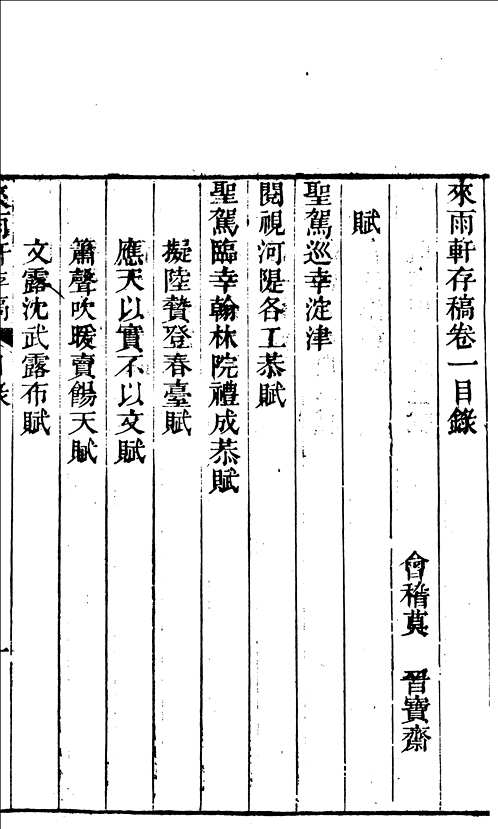 來雨軒存稿卷一目錄
會稽莫 晉寶齋
賦
聖駕巡幸淀津
閱視河隄各工恭賦
聖駕臨幸翰林院禮成恭賦
擬陸贄登春臺賦
應天以實不以文賦
簫聲吹暖賣餳天賦
文露沈武露布賦
來雨軒存稿 目錄 一